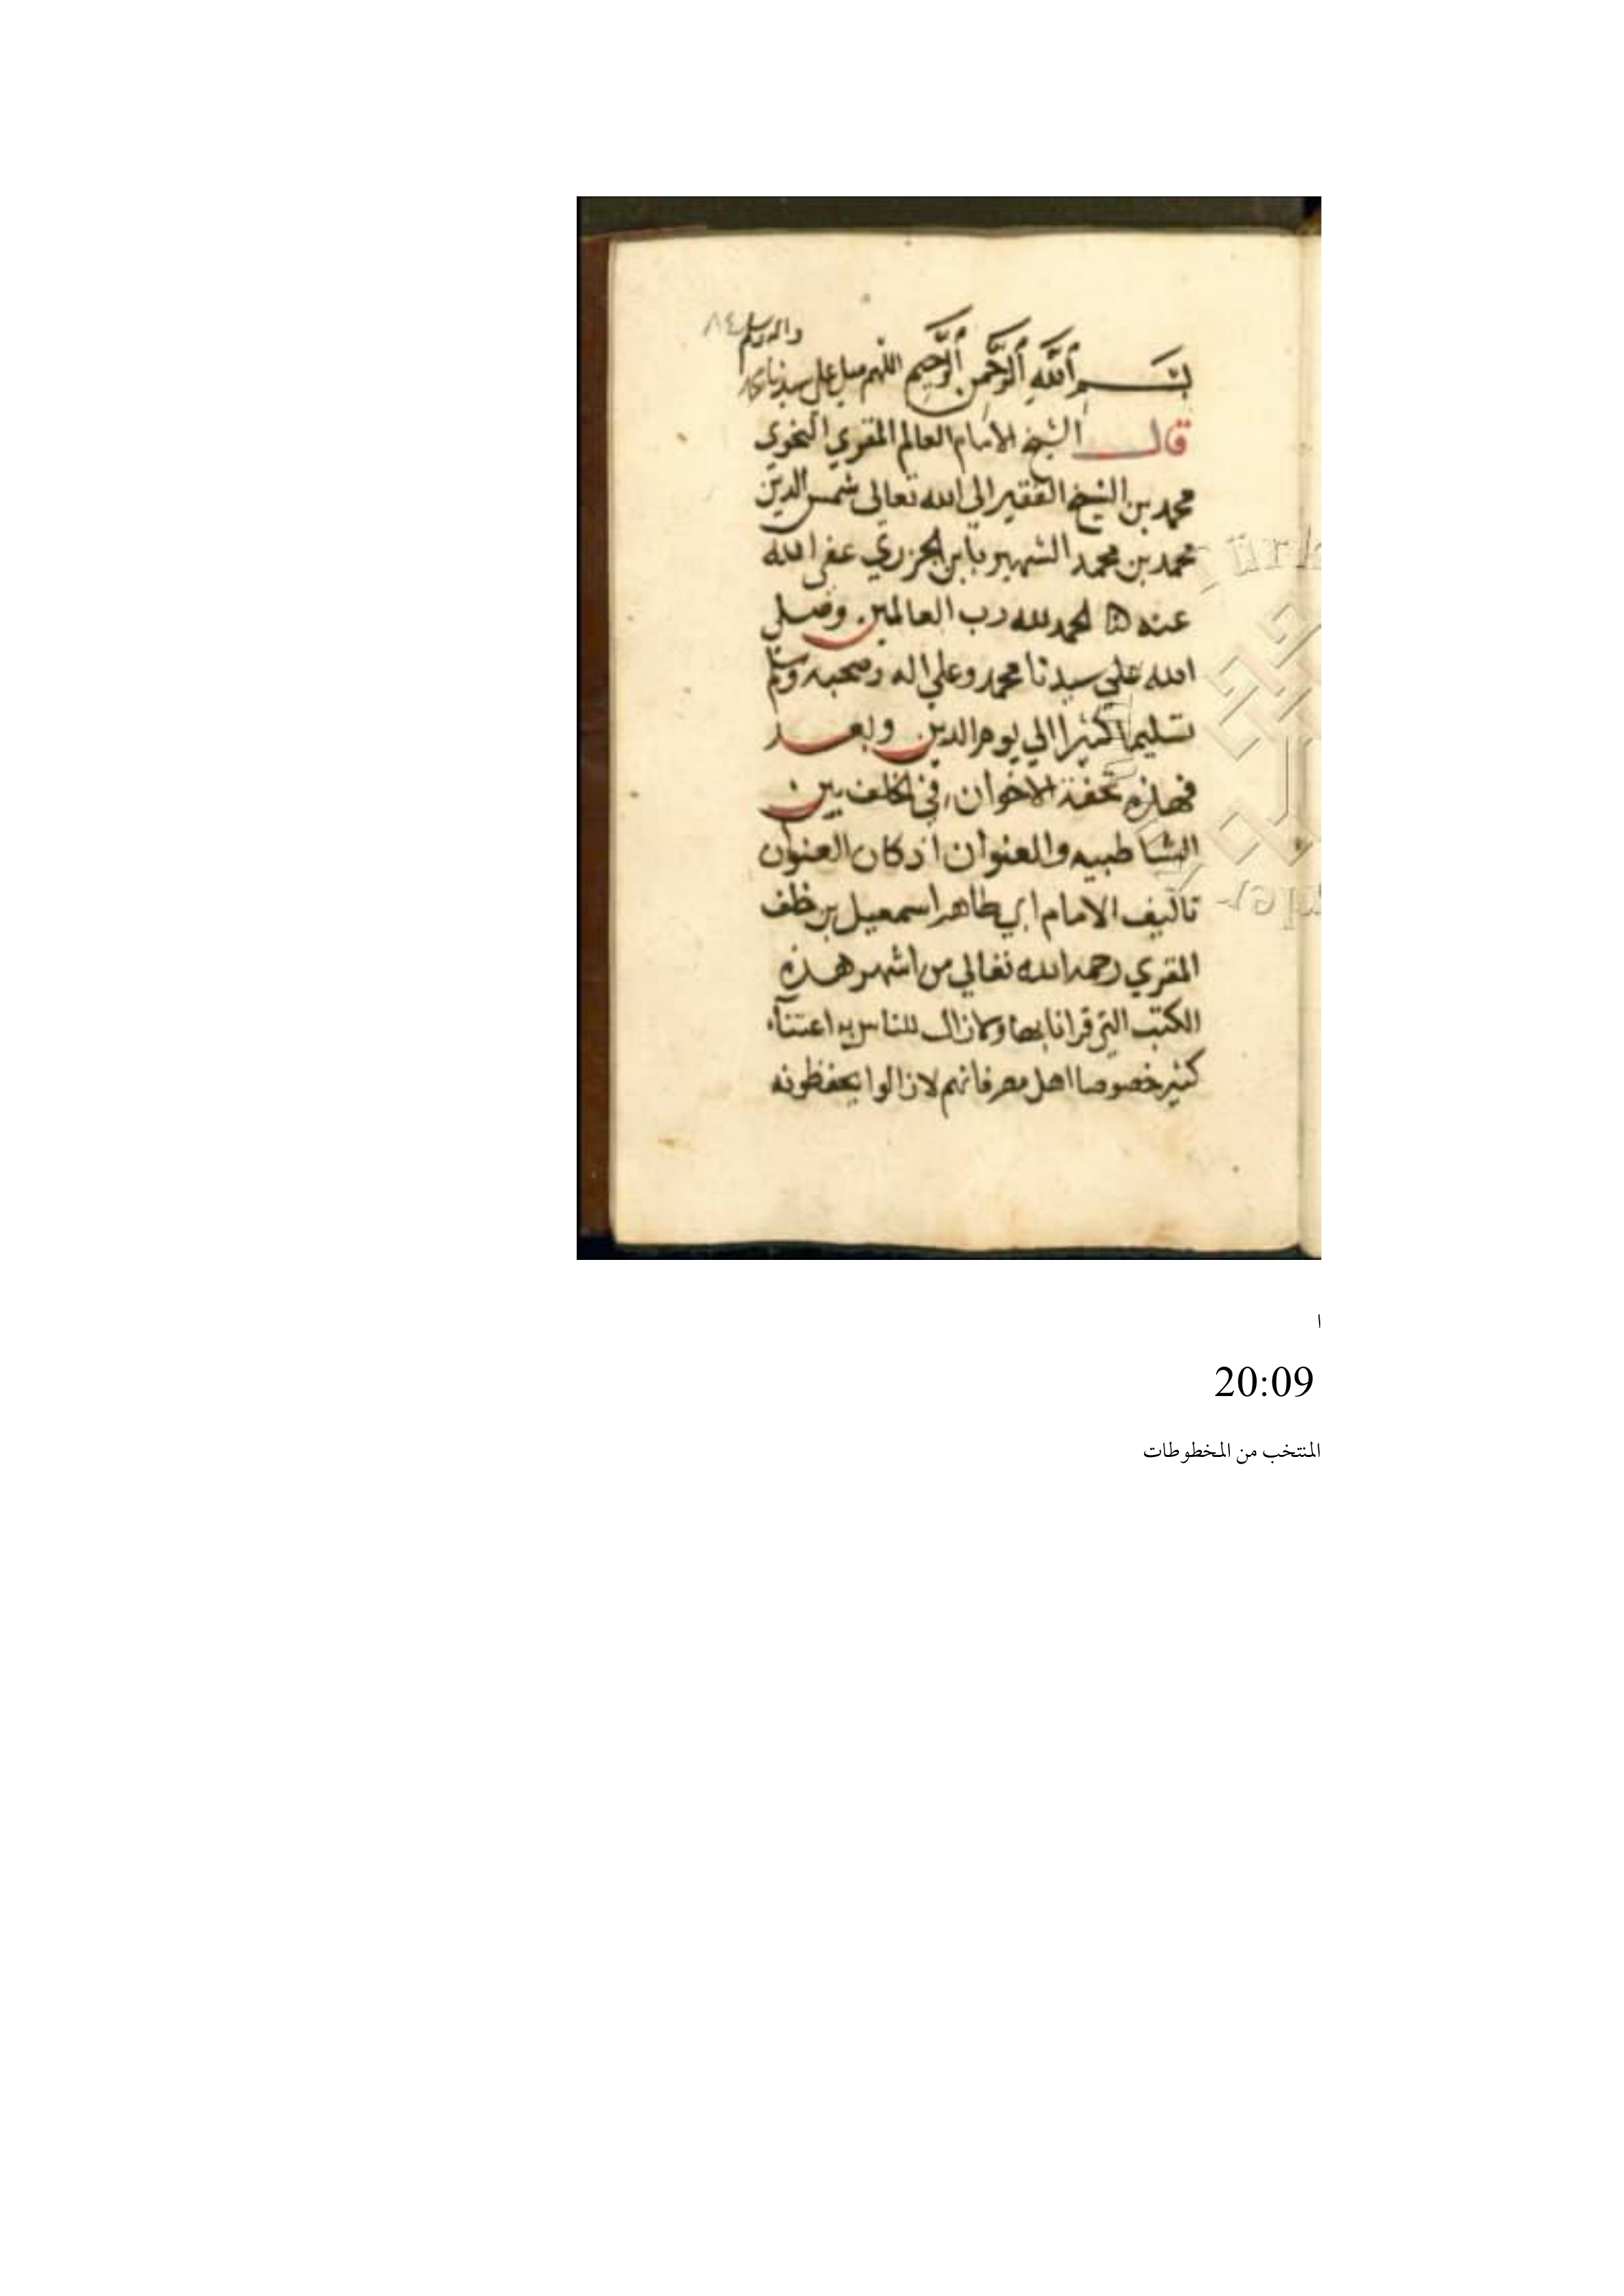 ٨٤
واله وسلم
بسم ٱللَّهِ ٱلرَّحْمنِ ٱلرَّحِيمِ اللهم صل على سيدنا محمد
قال الشيخ الامام العالم المقري النحوي
محمد بن الشيخ الفقير الى الله تعالى شمس الدين
محمد بن محمد الشهير بابن الجزري عفى الله
عنه الحمد لله رب العالمين وصلى
الله علي سيدنا محمد وعلي اله وصحبه وسلم
تسليما كثيرا الي يوم الدين وبعد
فهذه تحفة الاخوان في الخلف بين
الشاطبيه والعنوان اذ كان العنوان
تاليف الامام ابي طاهر اسمعيل بن خلف
المقري رحمه الله تعالي من اشهر هذه
الكتب التي قرانا بها وكان زال للناس به اعتناء
كثير خصوصا اهل مصر فانهم لا زالوا يحفظونه
Türk
ا
20:09
المنتخب من المخطوطات